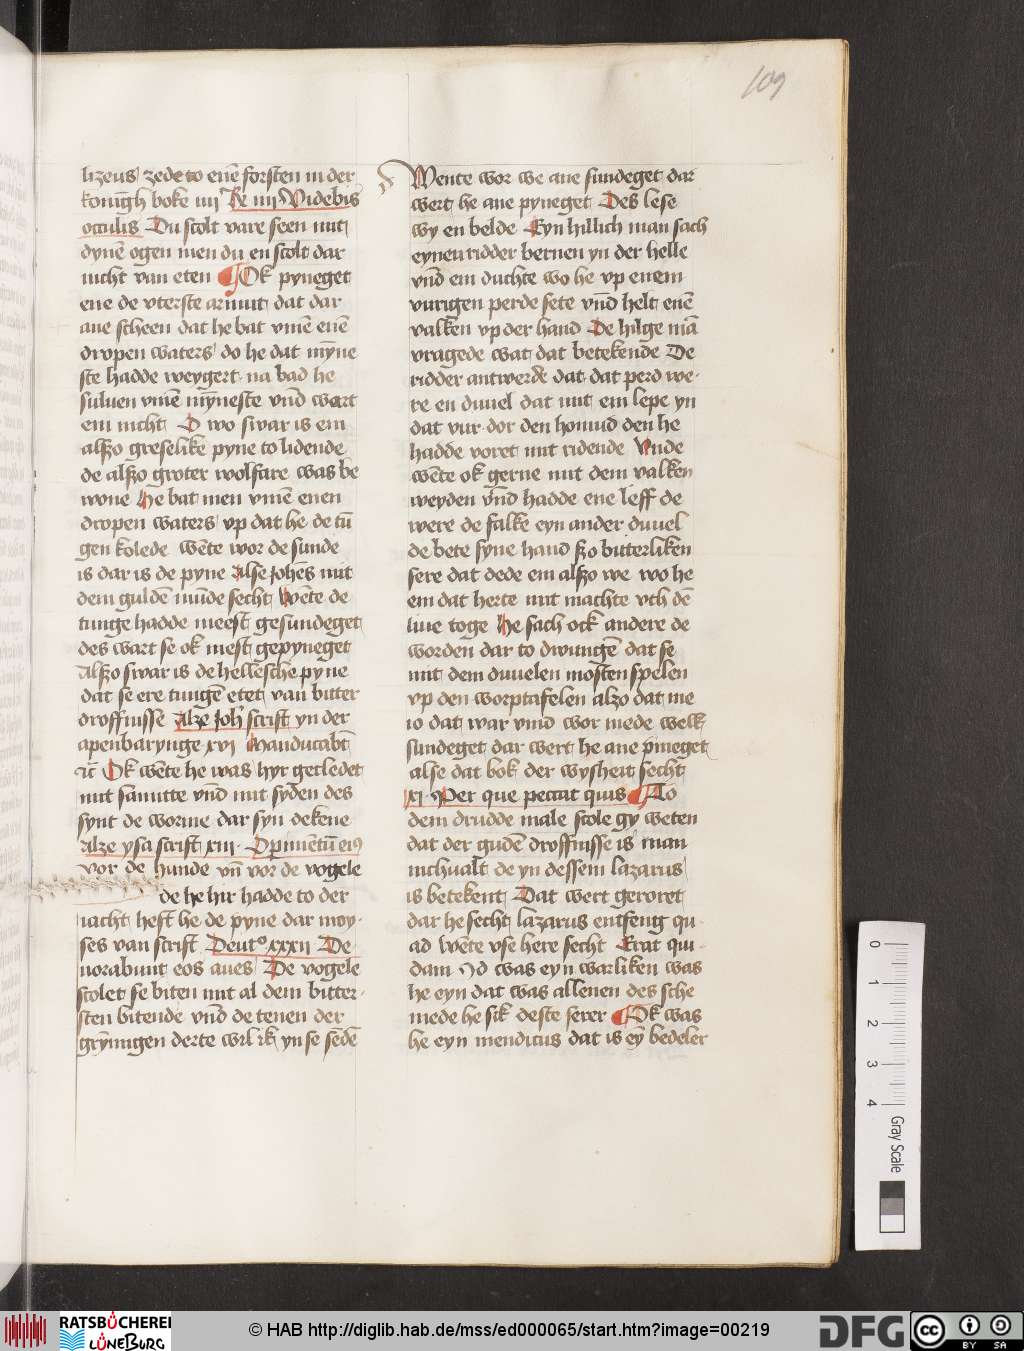 109
lizeus zede to enē forsten in der
konīgh boke iiii Re iiii Videbis
occulis Du scolt vare seen mit
dynē ogen men du en scolt dar
nicht van eten Ok pyneget
ene de vterste armut dat dar
ane scheen dat he bat vmē enē
dropen waters do he dat mȳne
ste hadde weygert na bad he
suluen vmē mȳneste vn̄d wart
em nicht O wo swar is em
alszo greselike pyne to lidende
de alszo groter wolfare was be
wone He bat men vmē enen
dropen waters vp dat he de tū
gen kolede wēte wor de sunde
is dar is de pyne Alse Johēs mit
dem guldē mūde secht Wēte de
tunge hadde meest gesundeget
des wart se ok mest gepyneget
Alszo swar is de hellesche pyne
dat se ere tungē etet van bitter
droffnisse Alze Joh' scrift yn der
apenbarynge xvi Manducabt̄
ut̄ Ok wēte he was hyr gecledet
mit samitte vn̄d mit syden des
synt de worme dar syn dekene
Alze ysa scrift xiiii Opimētū ei9
Vor de hunde vn̄ vor de vogele
de he hir hadde to der
iacht heft he de pyne dar moy-
ses van scrift Deut° xxxii De
uorabunt eos aues De vogele
scolet se biten mit al dem bitter-
sten bitende vn̄d de tenen der
grȳmigen derte wil ik yn se sēdē
Wente wor we ane sundeget dar
wert he ane pyneget Des lese
wy en belde Eyn hillich man sach
eynen ridder bernen yn der helle
vn̄d em duchte wo he vp enem
vurigen perde sete vn̄d helt enē
valken vp der hand De hilge mā
vragede wat dat betekende De
ridder antwerde dat dat perd we-
re en duuel dat mit em lepe yn
dat vur dor den homud den he
hadde voret mit ridende Vnde
wēte ok gerne mit dem valken
weyden vn̄d hadde ene leff de
were de falke eyn ander duuel
de bete syne hand szo bitterliken
sere dat dede em alszo we wo he
em dat herte mit machte vth dē
liue toge He sach ock andere de
worden dar to dwungē dat se
mit dem duuelen mosten spelen
vp den worptafelen alzo dat me
io dat war vmd wor mede welk
sundeget dar wert he ane pīneget
alse dat bok der wysheit secht
xi Per que peccat quis To
dem drudde male scole gy weten
dat der gudē droffnisse is man
nichualt de yn dessem lazarus
is betekent Dat wert geroret
dar he secht lazarus entfeng qu
ad wēte vse here secht Erat qui
dam Id was eyn warliken was
he eyn dat was allenen des sche
mede he sik deste serer Ok was
he eyn mendicus dat is eȳ bedeler
0
1
2
3
4
Gray Scale
RATSBÜCHEREI
LÜNEBURG
© HAB http://diglib.hab.de/mss/ed000065/start.htm?image=00219
DFG
cc
BY
SA